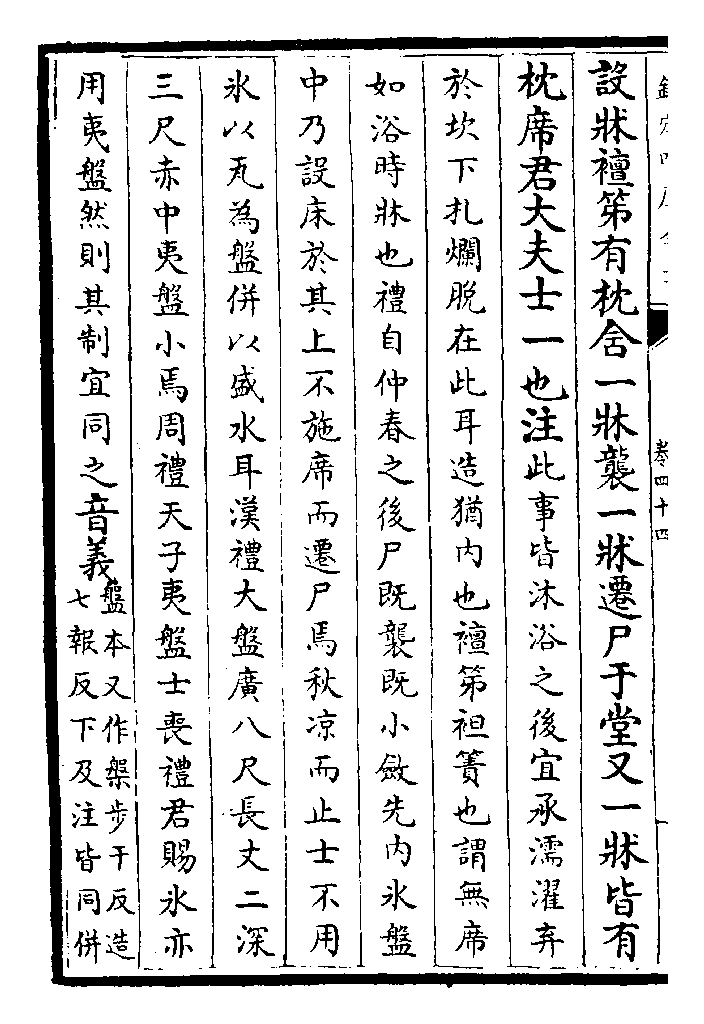 卷四十四
設牀襢笫有枕含一牀襲一牀遷尸于堂又一牀皆有
枕席君大夫士一也注此事皆沐浴之後宜承濡濯弃
於坎下札爛脫在此耳造猶内也襢笫袒簀也謂無席
如浴時牀也禮自仲春之後尸既襲既小斂先内氷盤
中乃設床於其上不施席而遷尸焉秋凉而止士不用
氷以瓦為盤併以盛水耳漢禮大盤廣八尺長丈二深
三尺赤中夷盤小焉周禮天子夷盤士喪禮君賜氷亦
用夷盤然則其制宜同之音義盤本又作槃步干反造
七報反下及注皆同併